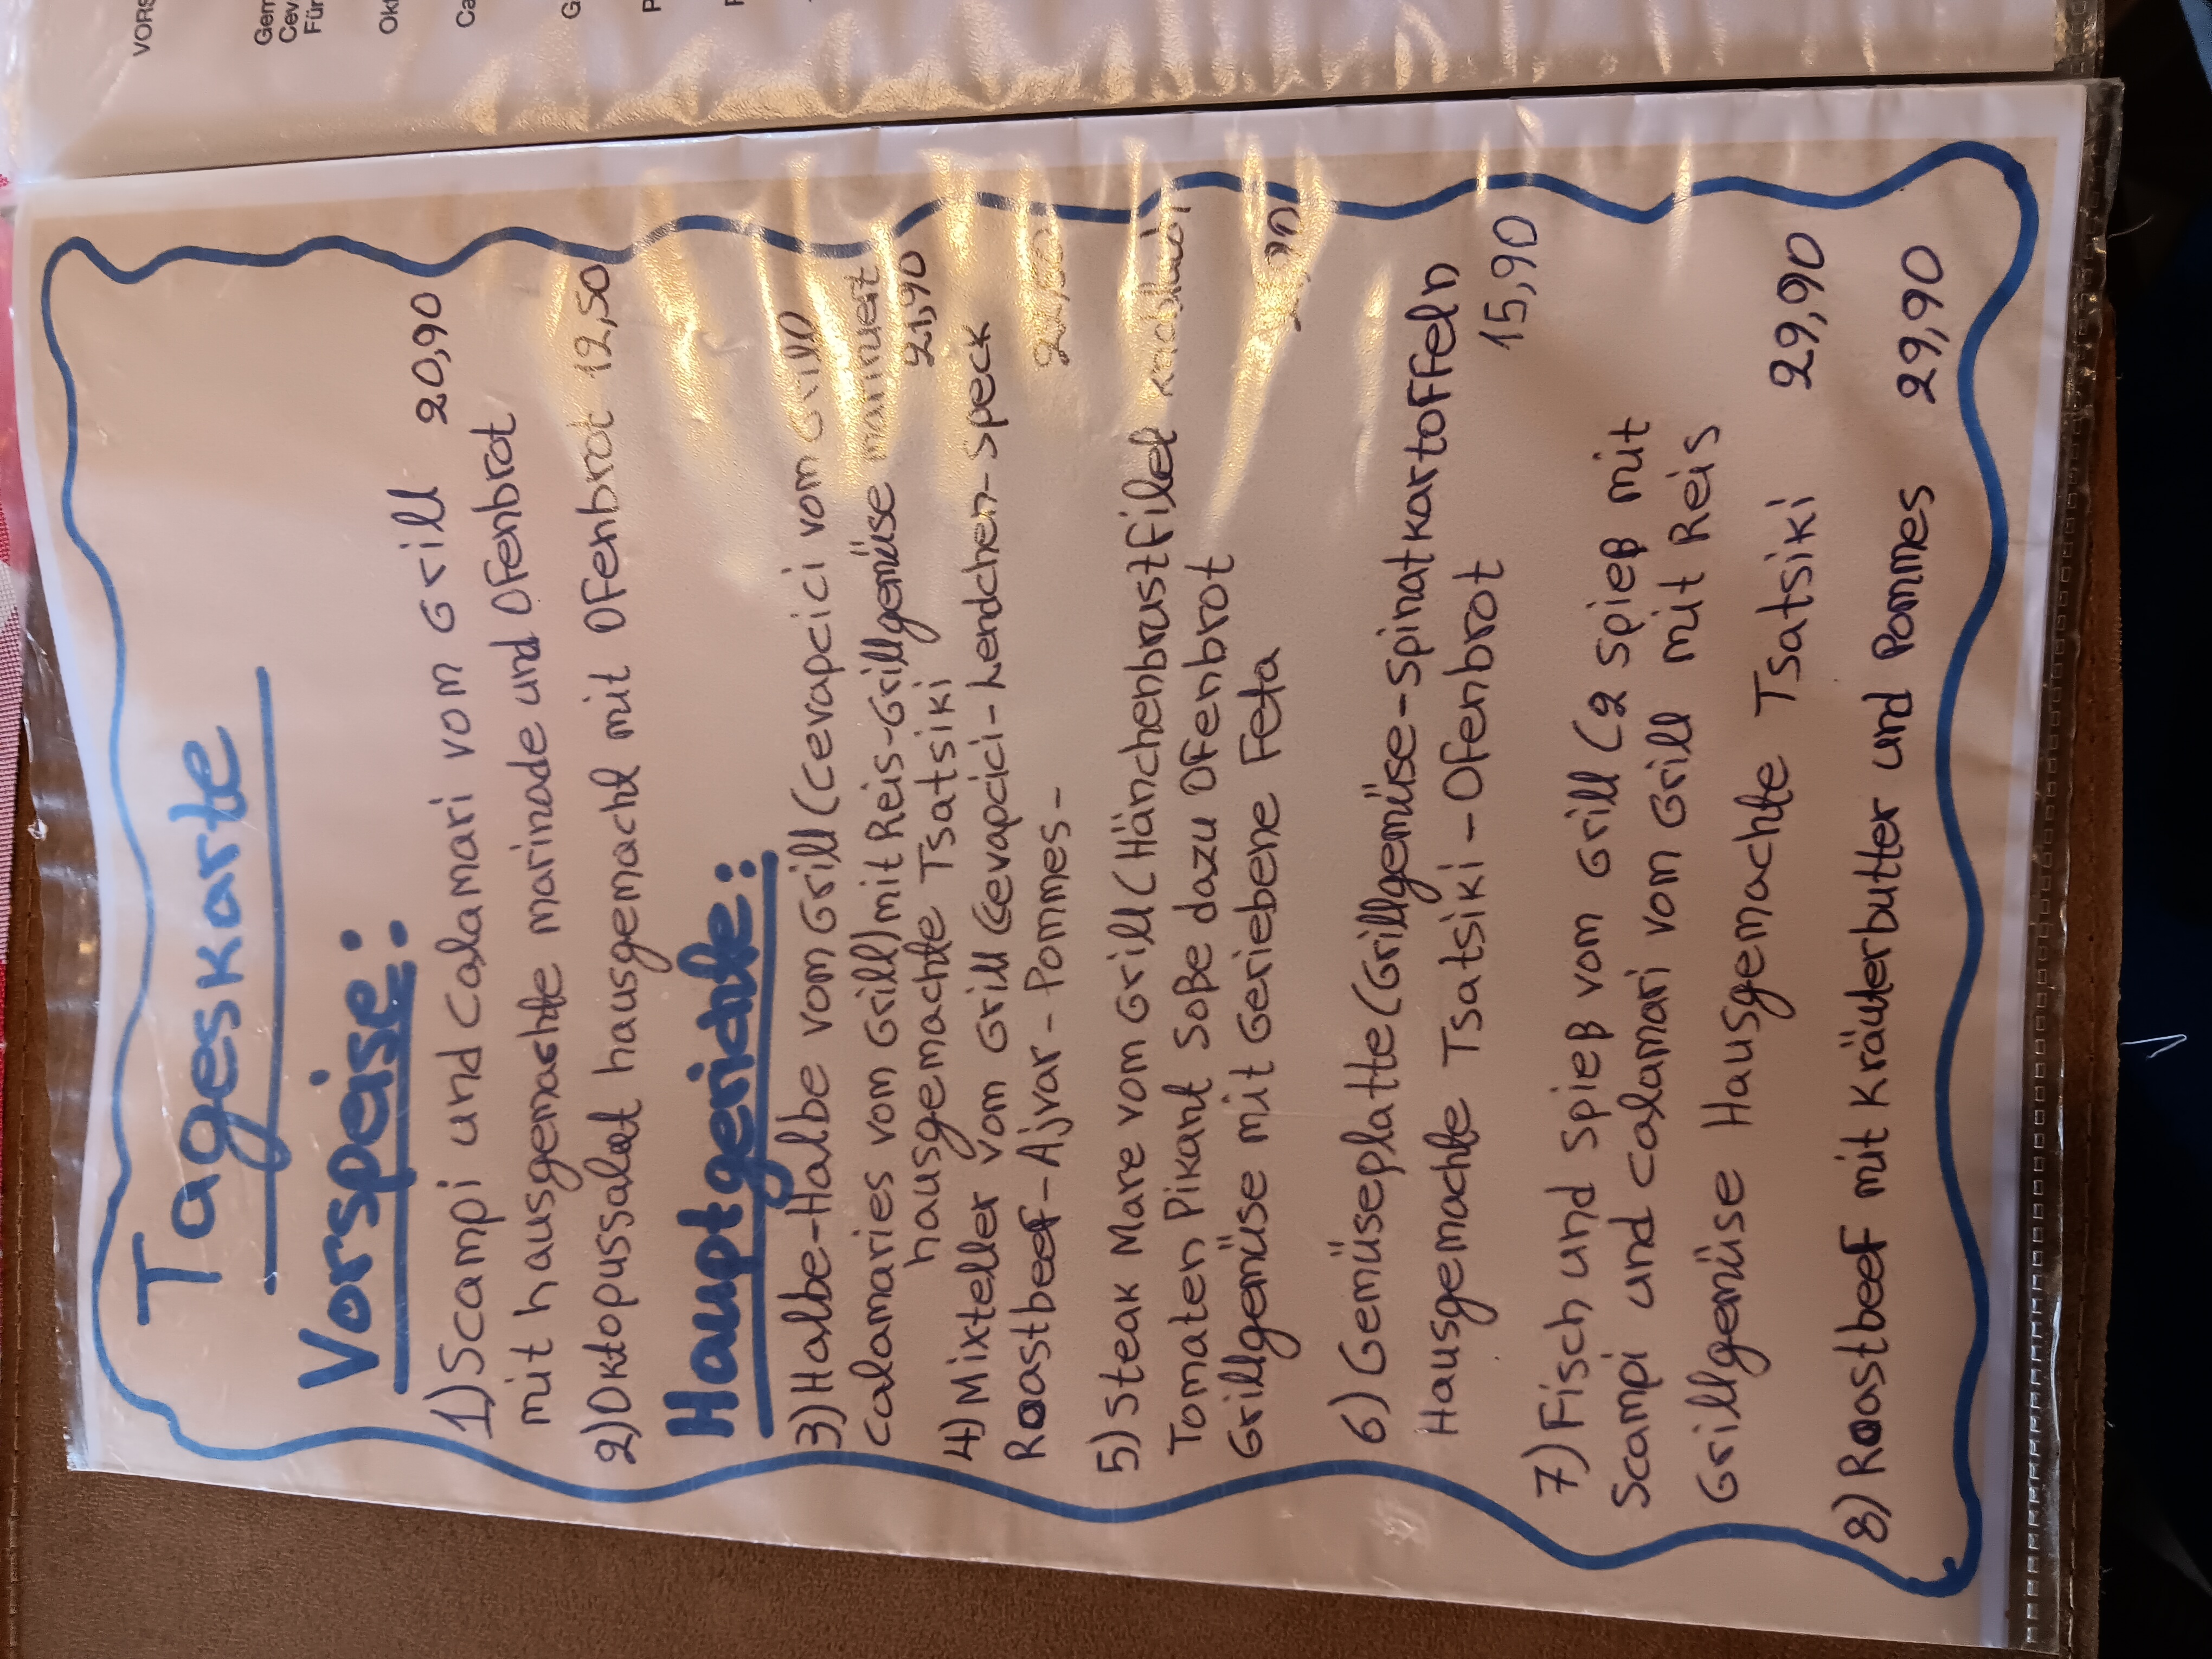 Tageskarte
Vorspeise:
1) Scampi und Calamari vom Grill 20,90
mit hausgemachte marinade und Ofenbrot
2) Oktopussalat hausgemacht mit Ofenbrot 12,50
Hauptgerichte:
3) Halbe-Halbe vom Grill (Cevapcici vom Grill
Calamaries vom Grill) mit Reis-Grillgemüse mariniert
hausgemachte Tsatsiki 21,90
4) Mixteller vom Grill (Cevapcici-Lendchen-Speck
Roastbeef-Ajvar-Pommes-
5) Steak Mare vom Grill (Hänchenbrustfilet
Tomaten Pikant Soße dazu Ofenbrot
Grillgemüse mit Geriebene Feta
6) Gemüseplatte (Grillgemüse-Spinatkartoffeln
Hausgemachte Tsatsiki-Ofenbrot 15,90
7) Fisch und Spieß vom Grill (2 Spieß mit
Scampi und Calamari vom Grill mit Reis
Grillgemüse Hausgemachte Tsatsiki 29,90
8) Roastbeef mit Kräuterbutter und Pommes 29,90
VORS
Gem
Cev
Für
Okt
Ca
G